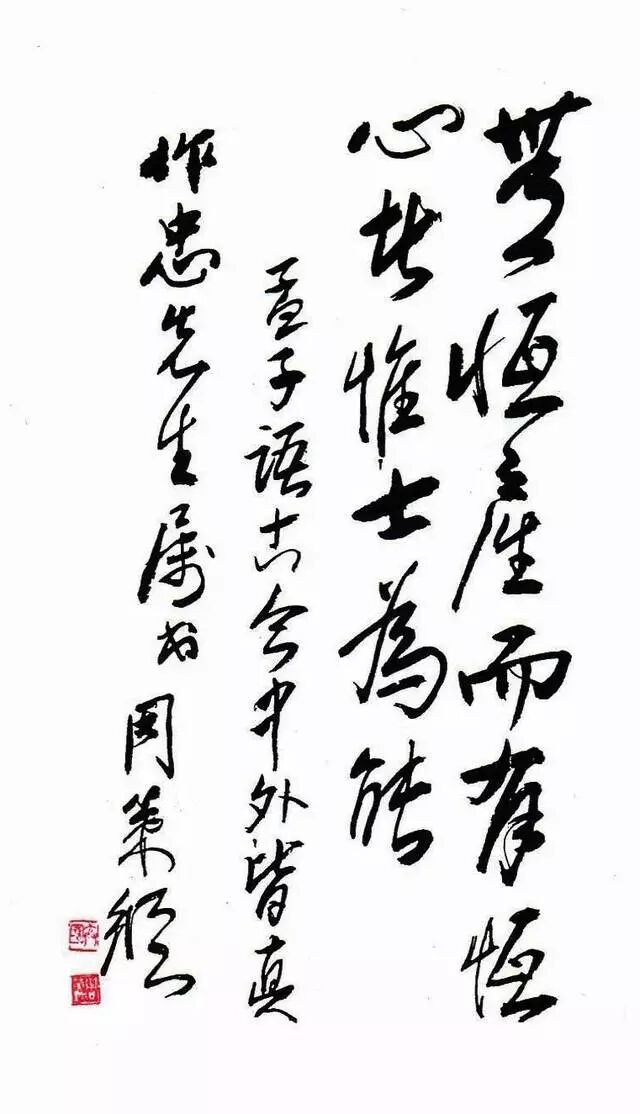 無恒產而有恒
心者惟士為能
孟子語古今中外皆真
作忠先生属书
周策縱